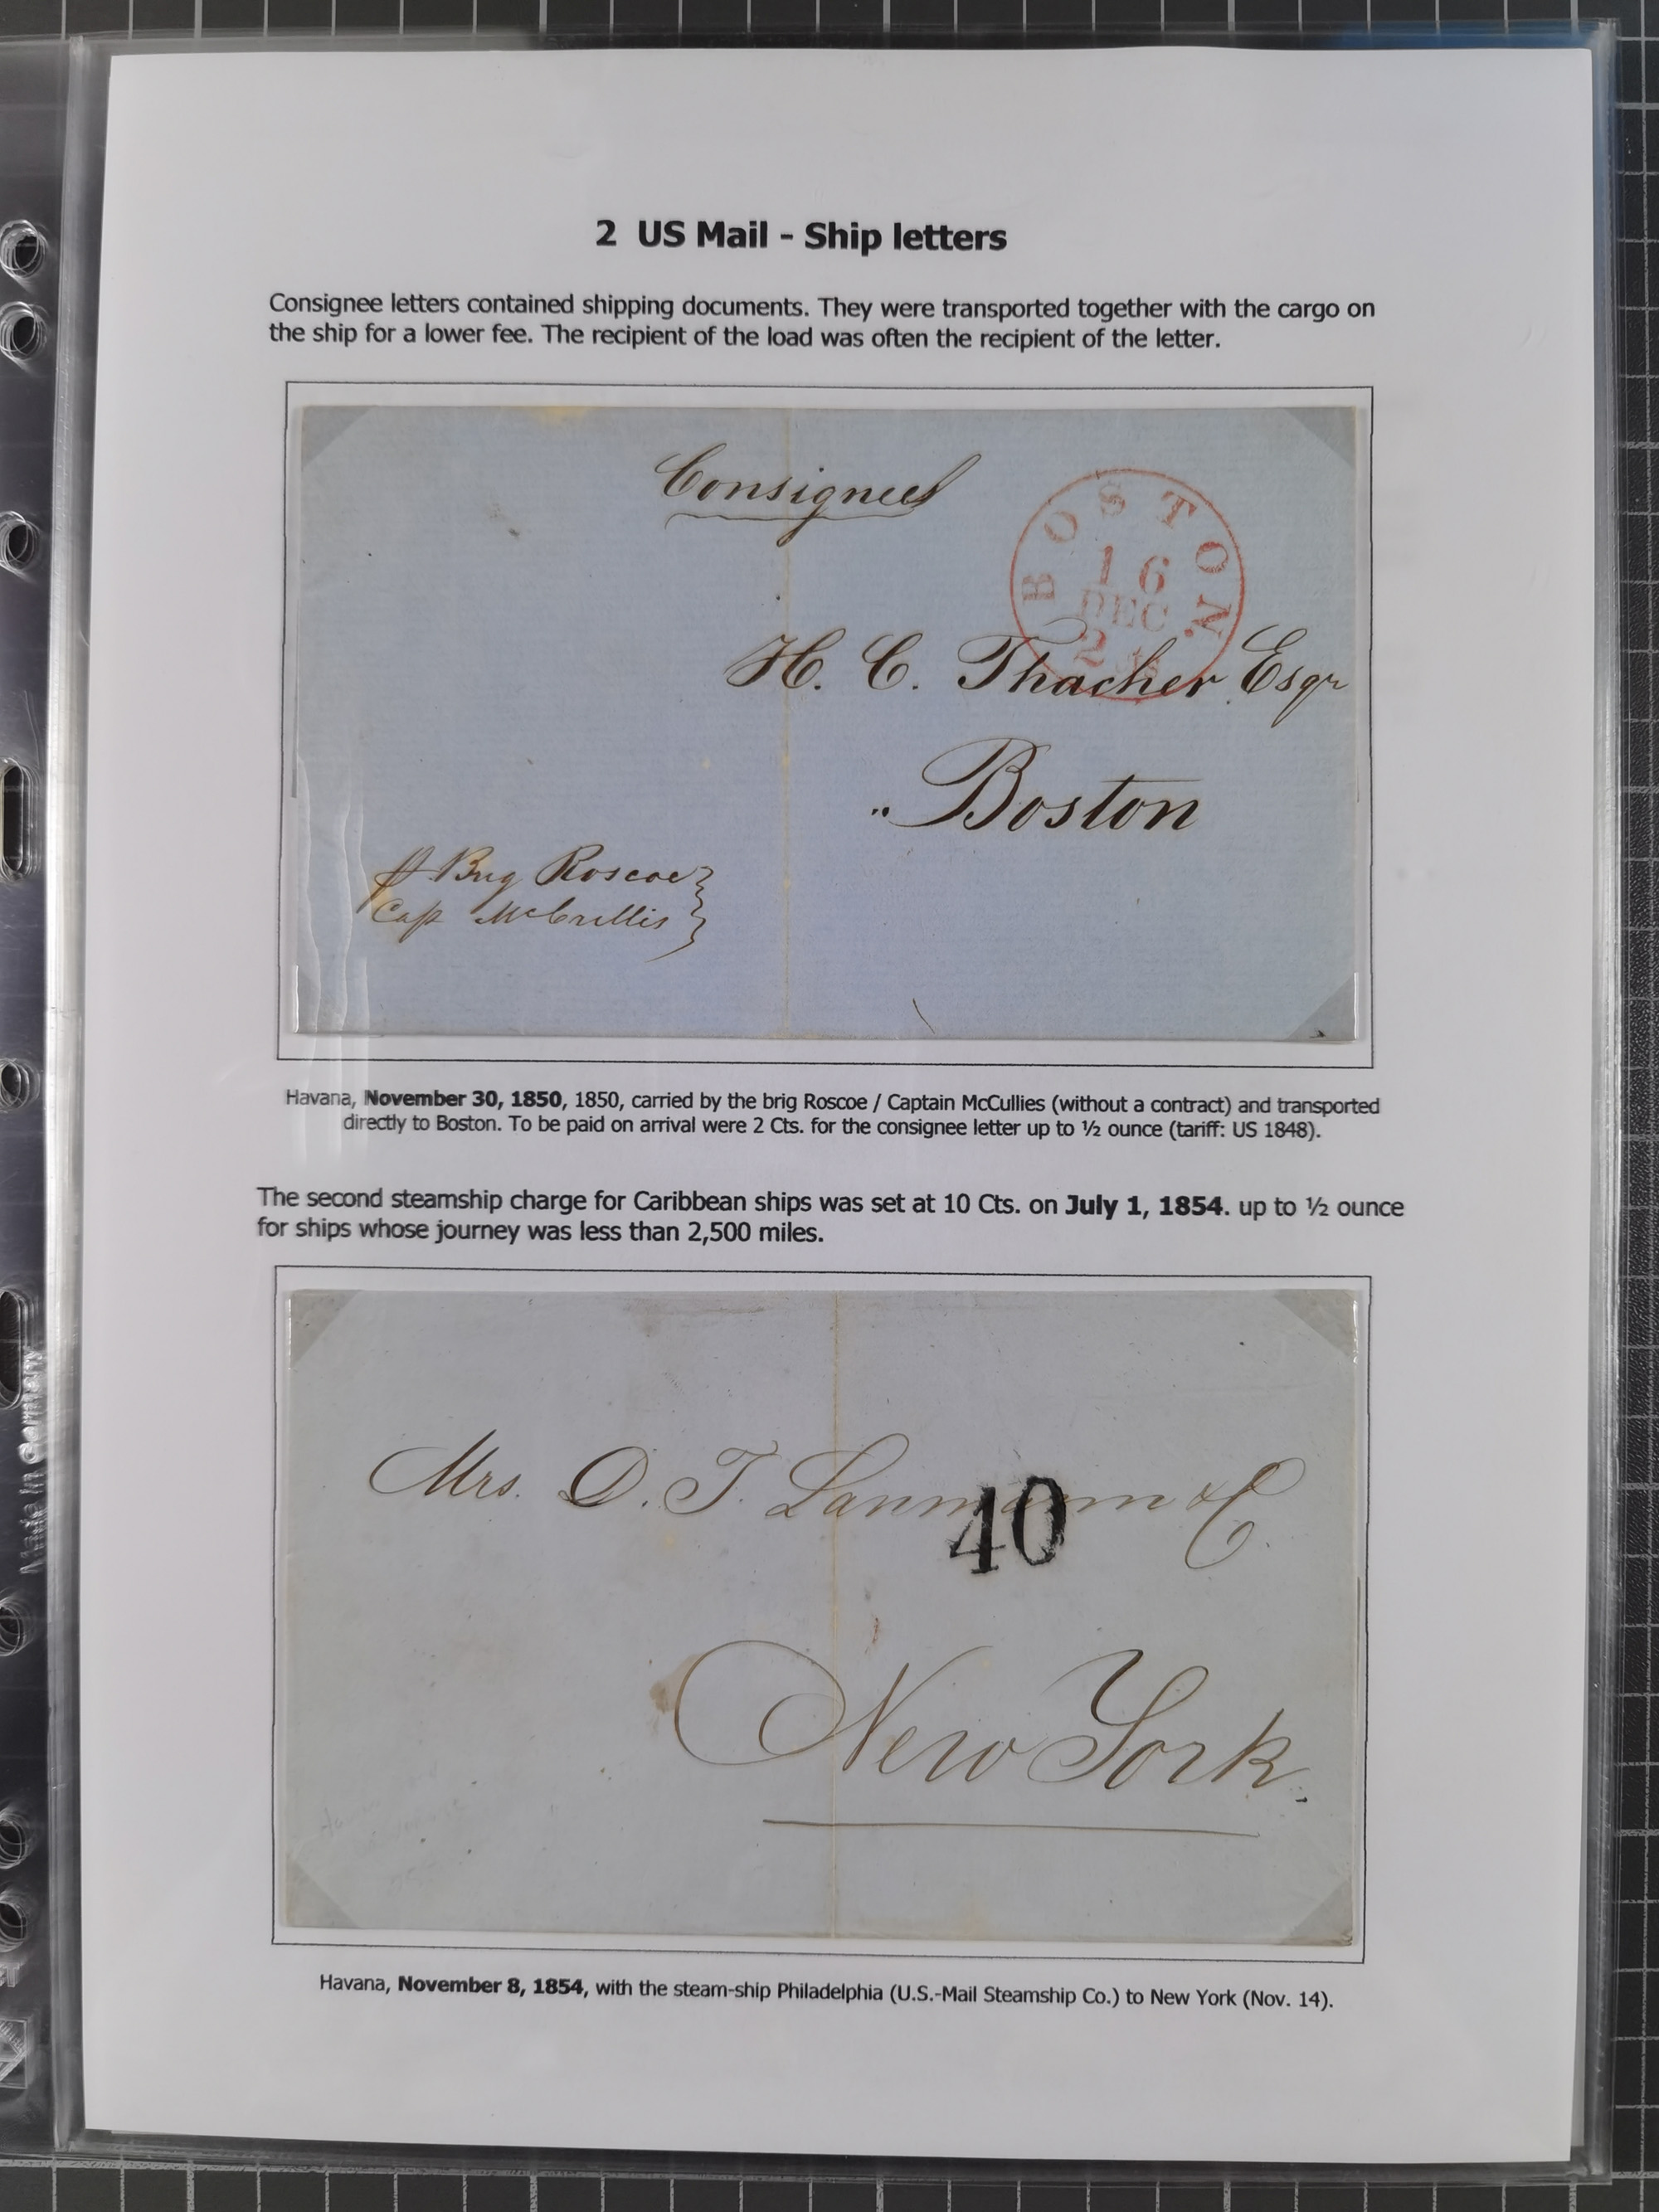 2 US Mail - Ship letters
Consignee letters contained shipping documents. They were transported together with the cargo on
the ship for a lower fee. The recipient of the load was often the recipient of the letter.
Consignees
BOSTON.
16
DEC
2
H. C. Thacher Esqr
Boston
Brig Roscoe
Cap McCrillis
Havana, November 30, 1850, 1850, carried by the brig Roscoe / Captain McCullies (without a contract) and transported
directly to Boston. To be paid on arrival were 2 Cts. for the consignee letter up to ½ ounce (tariff: US 1848).
The second steamship charge for Caribbean ships was set at 10 Cts. on July 1, 1854. up to ½ ounce
for ships whose journey was less than 2,500 miles.
Mrs. D. T. Lanmann & C.
40
New York.
Havana, November 8, 1854, with the steam-ship Philadelphia (U.S.-Mail Steamship Co.) to New York (Nov. 14).
Made in Germany